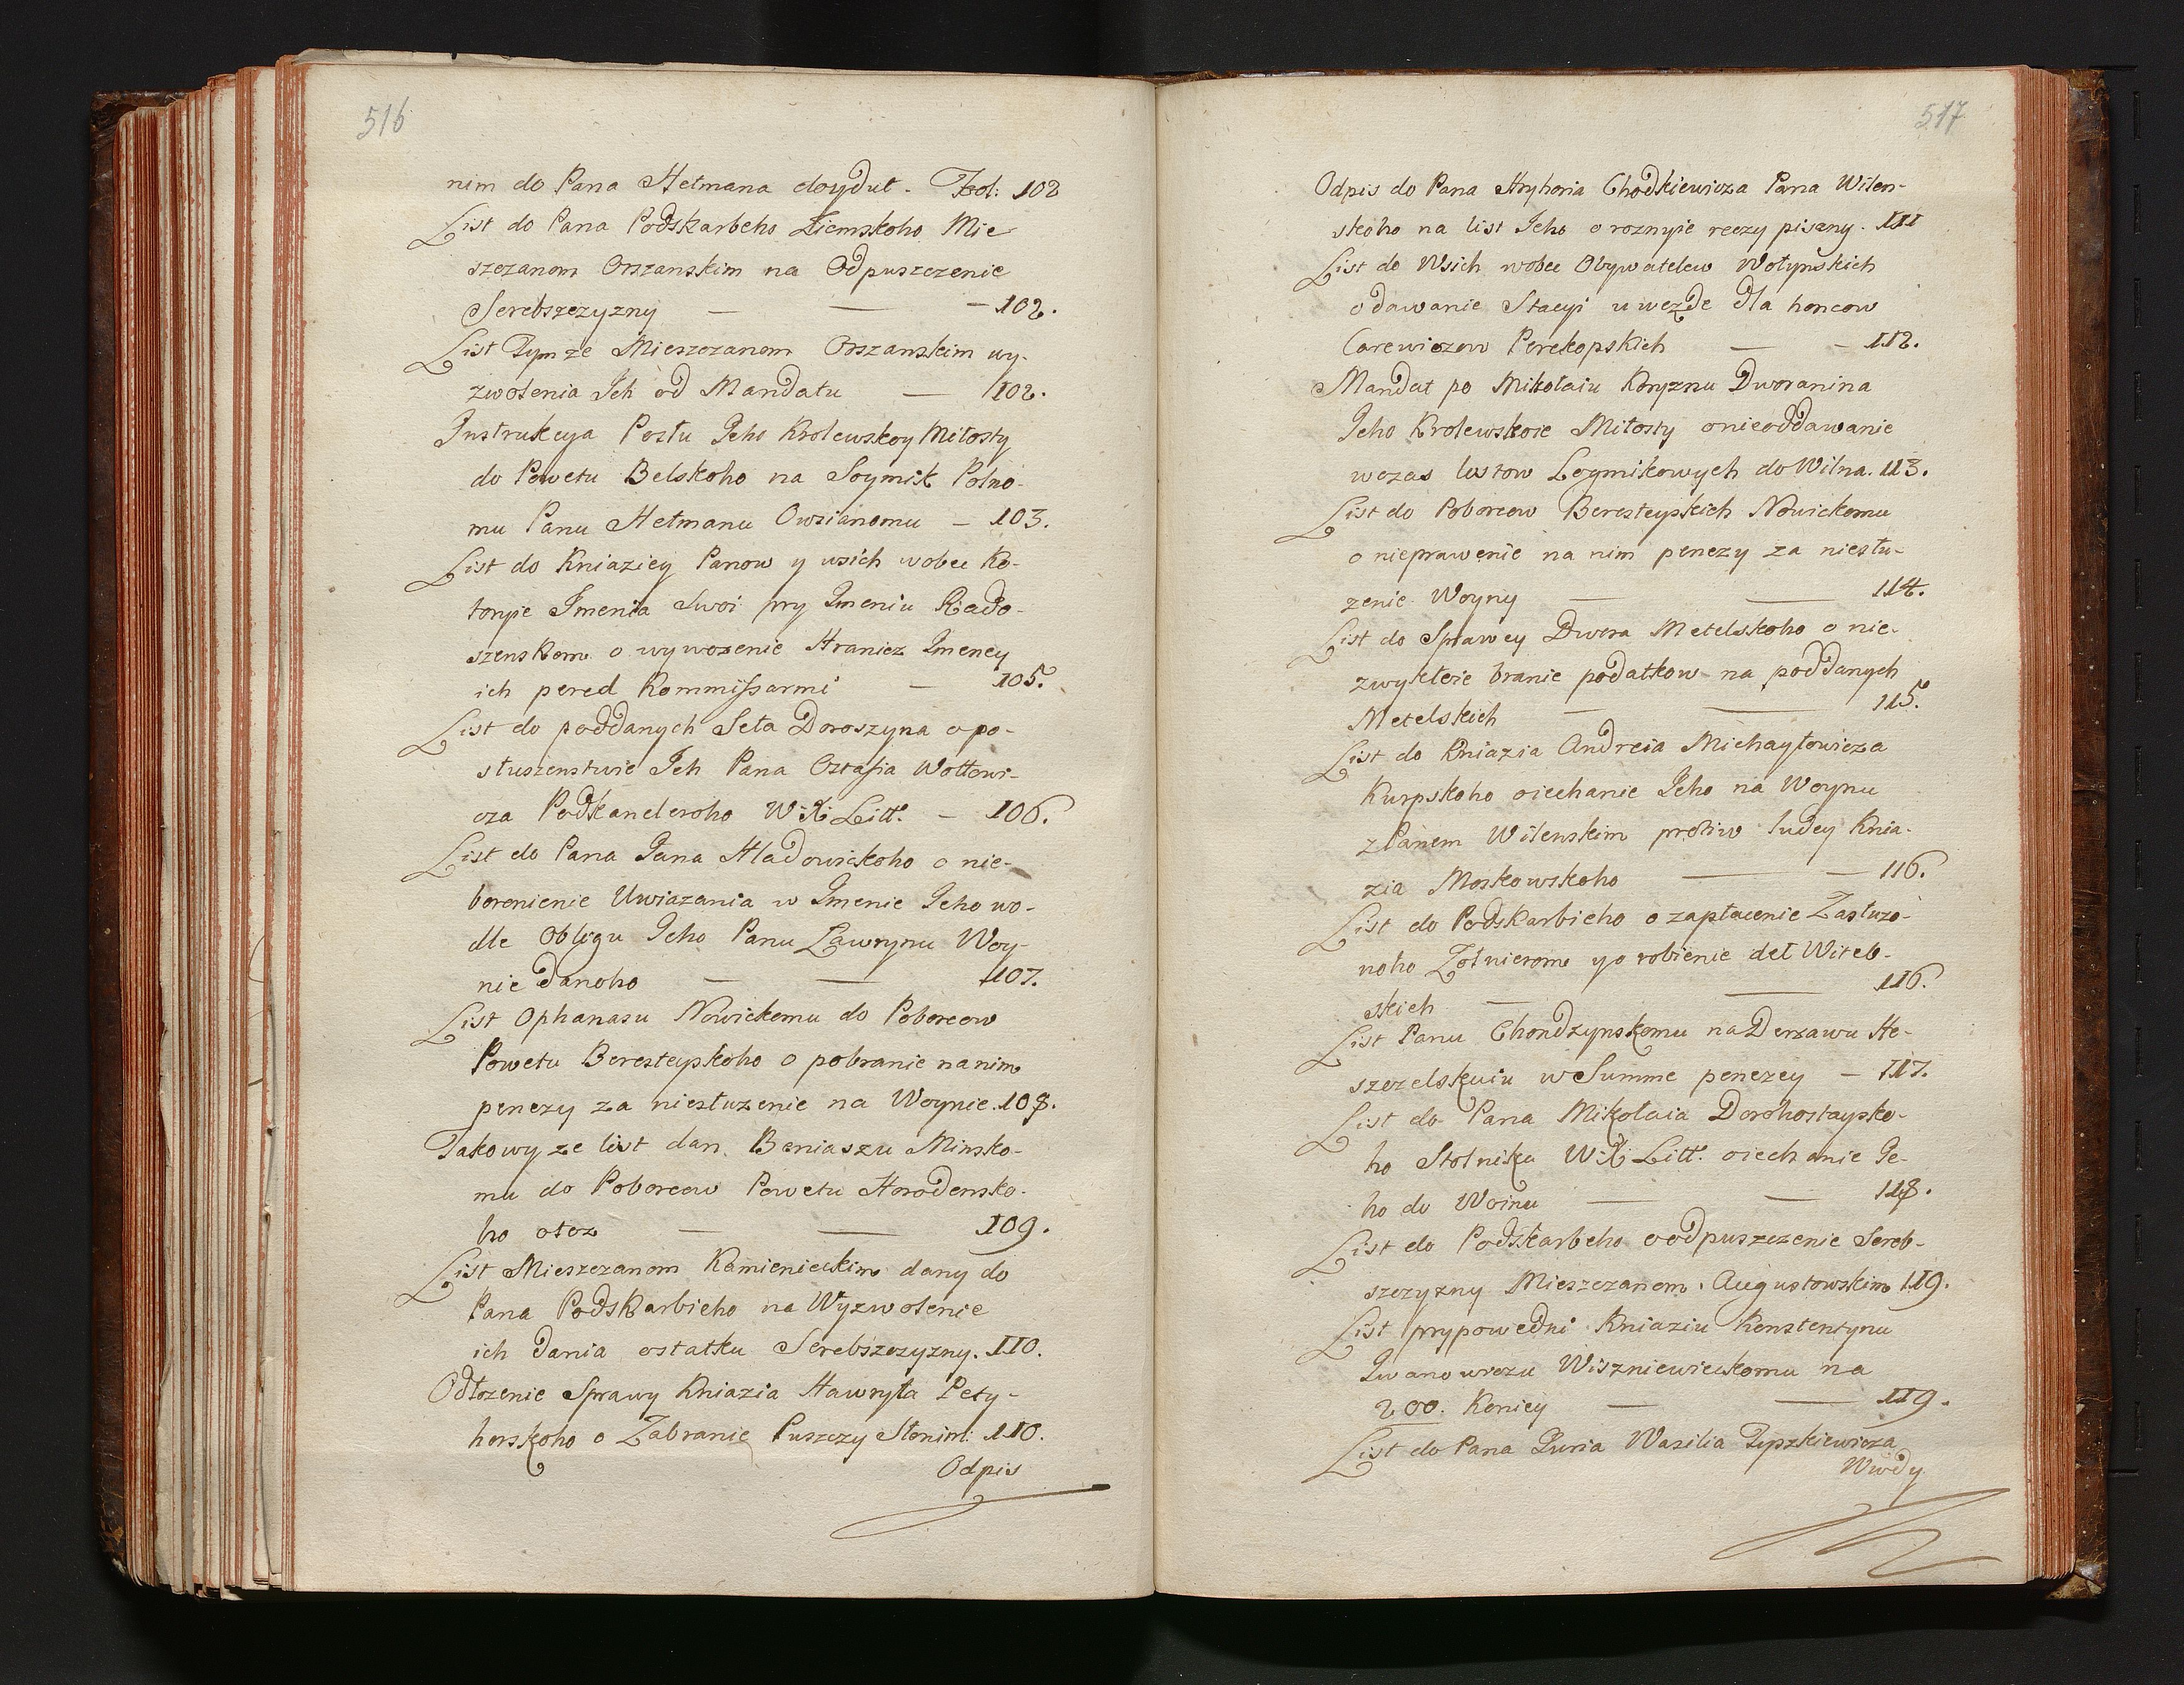 516
nim do Pana Hetmana doydut. Fol: 102
List do Pana Podskarbeho Ziemskoho Mie
szczanom Orszanskim na Odpuszczenie
Serebszczyzny — — — 102.
List Tymze Mieszczanom Orszanskim wy-
zwolenia Jch od Mandatu — 102.
Instrukcya Posłu Jeho Krolewskoy Miłosty
do Powetu Belskoho na Soymik Polno-
mu Panu Hetmanu Owsianomu — 103.
List do Kniaziey Panow y wsich wobec Ko-
toryie Jmenia Swoi pry Jmeniu Riado-
szenskom o wywozenie Hranicz Jmeney
ich pered Kommissarmi — 105.
List do poddanych Seła Doroszyna o po-
słuszenstwie Jch Pana Ostafia Wołłowi-
cza Podkancleroho W: X: Litt: — 106.
List do Pana Jana Hladowickoho o nie-
boronienie Uwiazania w Jmenie Jeho wo-
dle Obligu Jeho Panu Ławrynu Woy-
nie danoho — — 107.
List Ophanasu Nowickomu do Poborcow
Powetu Beresteyskoho o pobranie na nim
penezy za niesłuzenie na Woynie. 108.
Takowyze list dan Beniaszu Minsko-
mu do Poborcow Powetu Horodensko-
ho otoz — — 109.
List Mieszczanom Kamienieckim dany do
Pana Podskarbieho na Wyzwolenie
ich dania ostatku Serebszczyzny. 110.
Odłozenie Sprawy Kniazia Hawryła Pety-
horskoho o Zabranie Puszczy Słonim: 110.
Odpis
517
Odpis do Pana Hryhoria Chodkiewicza Pana Wilen-
skoho na list Jeho o roznyie reczy pisany. 111
List do Wsich wobec Obywatelew Wołynskich
o dawanie Stacyi uwezde dla honcow
Carewiczow Perekopskich — — 112.
Mandat po Mikołaiu Koryznu Dworanina
Jeho Krolewskoie Miłosty o nieoddawanie
wczas listow Seymikowych do Wilna. 113.
List do Poborcow Beresteyskich Nowickomu
o nieprawenie na nim penezy za niesłu-
zenie Woyny — — 114.
List do Sprawcy Dwora Metelskoho o nie-
zwykłoie branie podatkow na poddanych
Metelskich — — 115.
List do Kniazia Andreia Michayłowicza
Kurpskoho oiechanie Jeho na Woynu
z Panem Wilenskim protiw ludey Knia-
zia Moskowskoho — — 116.
List do Podskarbieho o zapłacenie Zasłuzo-
noho Zołnierom y o robienie deł Witeb-
skich — — 116.
List Panu Chondzynskomu na Derzawu He-
szczelskuiu w Summe penezey — 117.
List do Pana Mikołaia Dorohostaysko-
ho Stolnika W: X: Litt: oiechanie Je-
ho do Woinu — — 118.
List do Podskarbeho o odpuszczenie Sereb-
szczyzny Mieszczanom Augustowskim 119.
List prypowedni Kniaziu Konstentynu
Jwanowiczu Wiszniewieckomu na
200. Koniey — — 119.
List do Pana Juria Wasilia Tyszkiewicza
Wwdy